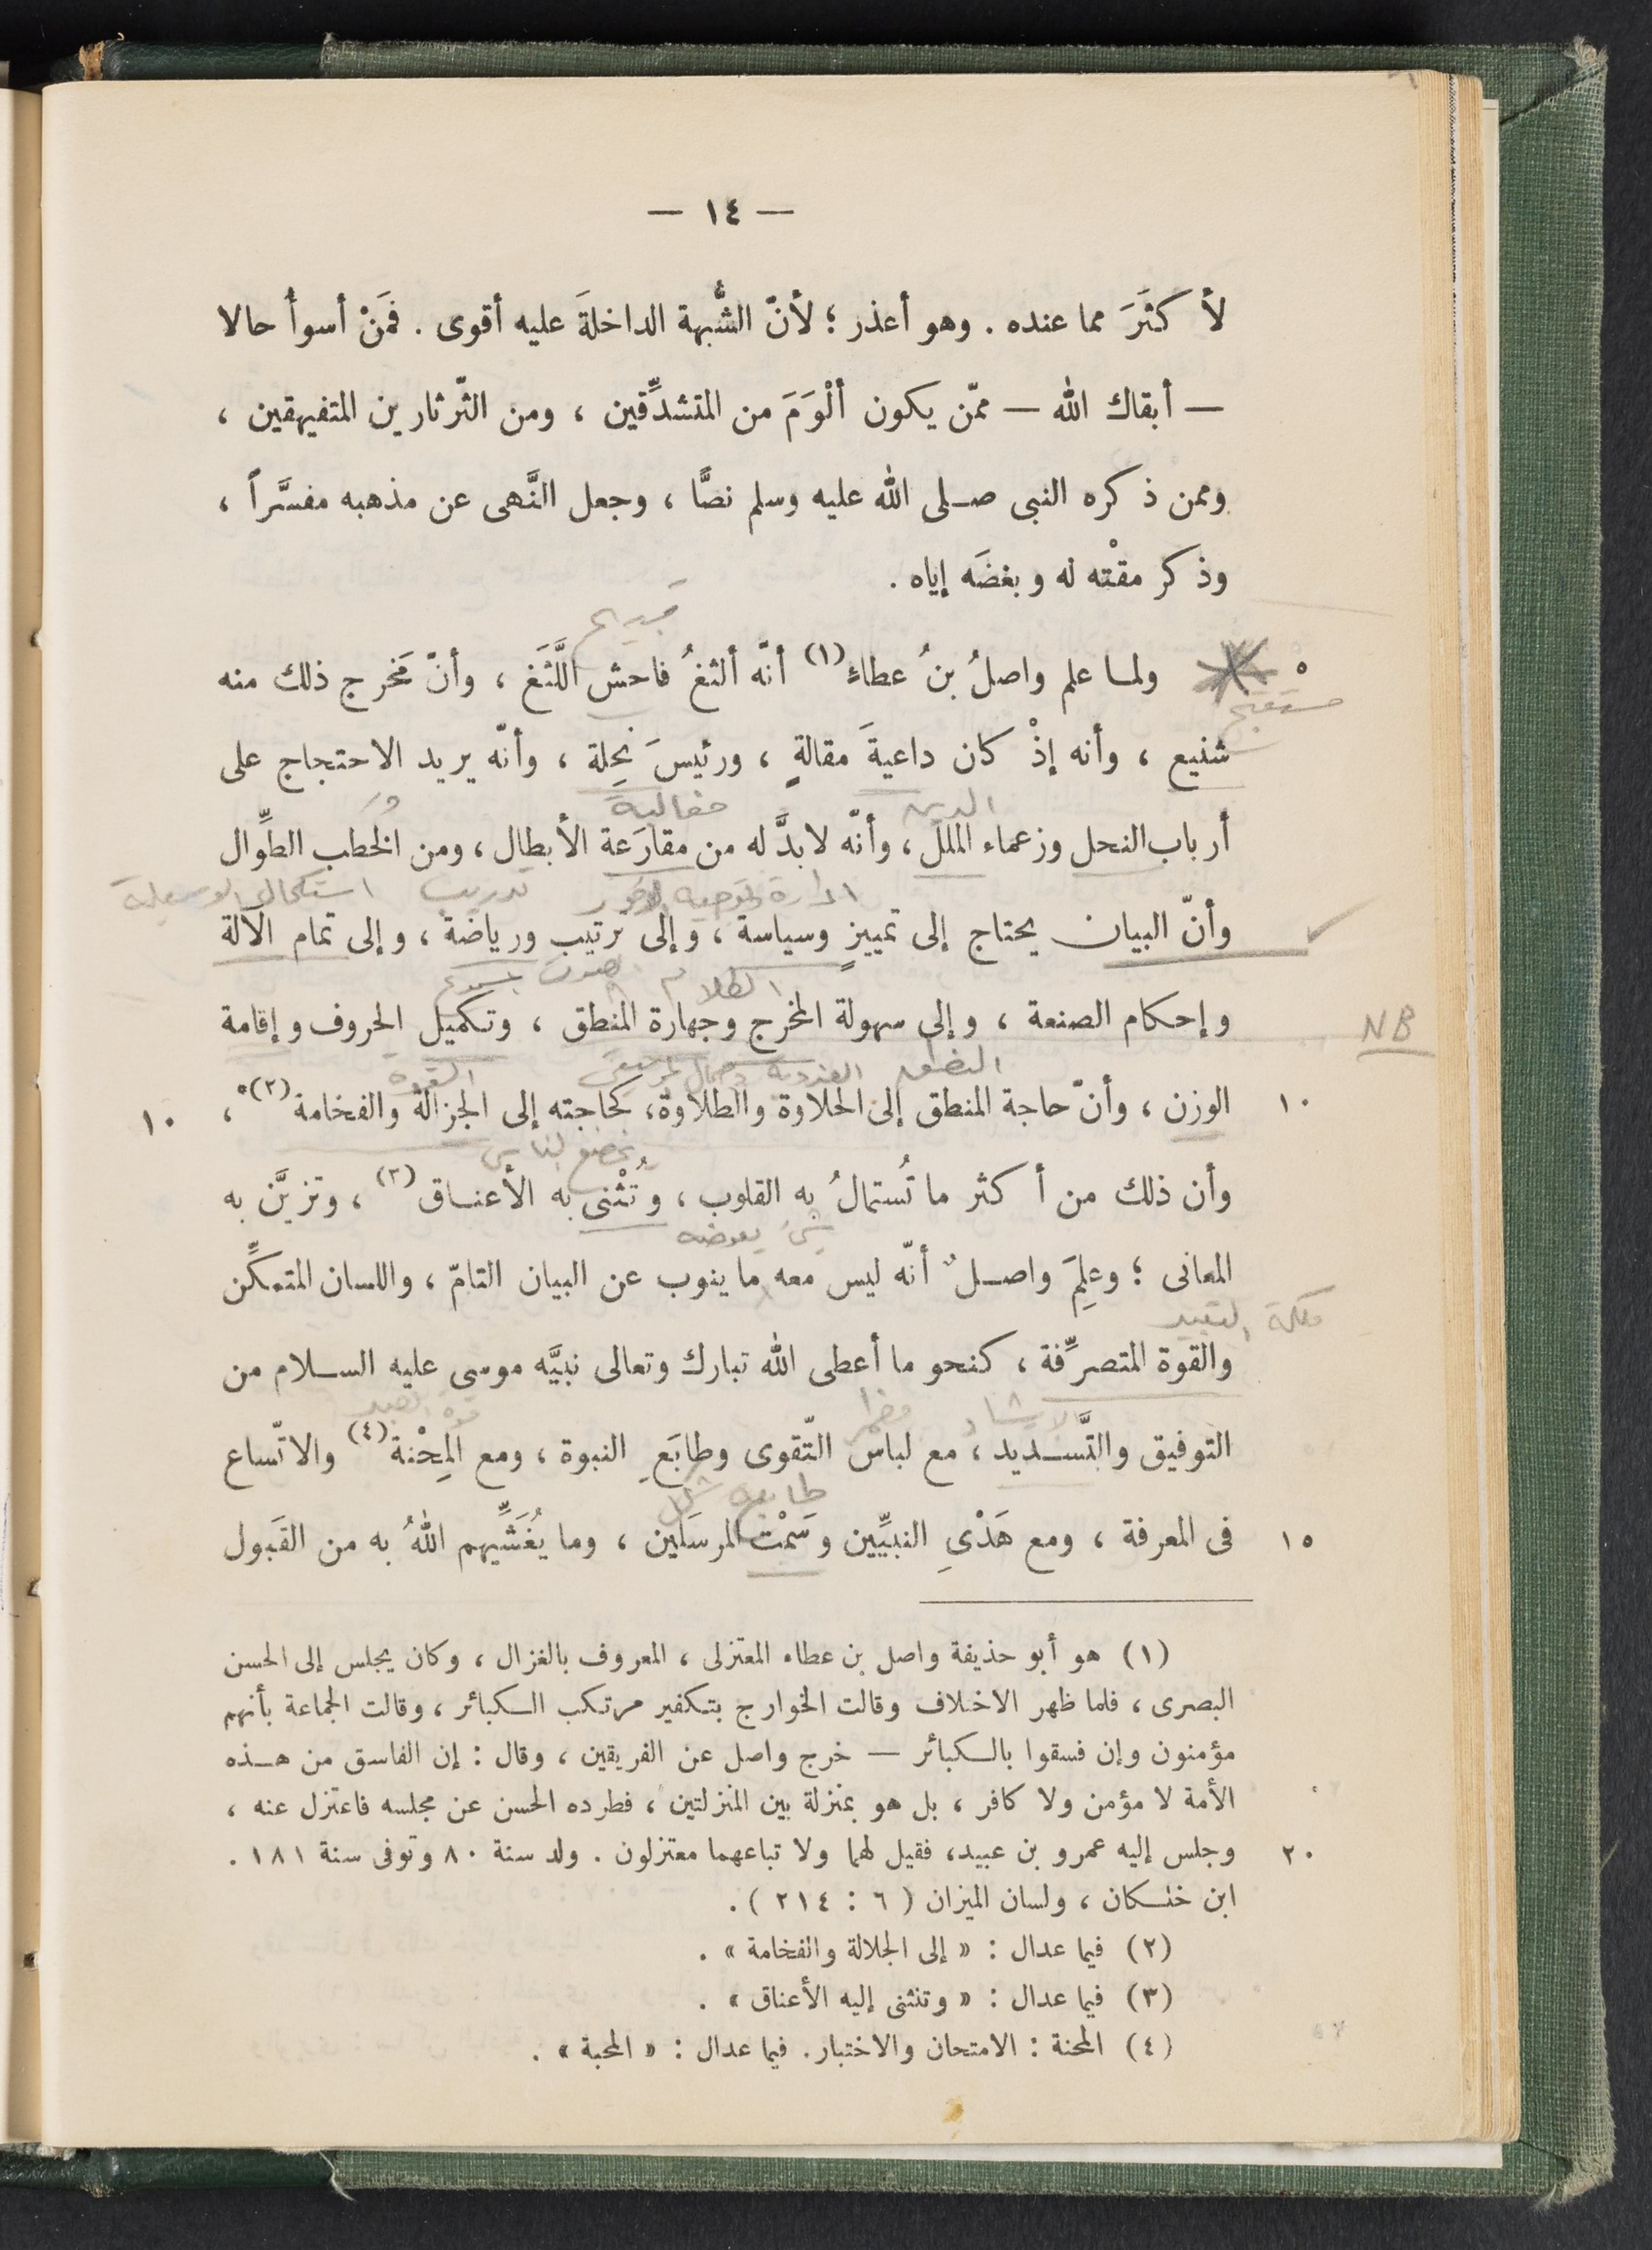 — ١٤ —
لأكثَرَ مما عنده . وهو أعذر ؛ لأنّ الشُّبهة الداخلةَ عليه أقوى . فمَنْ أسوأُ حالا
— أبقاك الله — ممّن يكون ألْوَمَ من المتشدِّقين ، ومن الثّرثارين المتفيهقين ،
وممن ذكره النبى صلى الله عليه وسلم نصًّا ، وجعل النَّهى عن مذهبه مفسَّراً ،
وذكر مقْته له وبغضَه إياه .
قبيح
٥ ولما علم واصلُ بنُ عطاءٍ(١) أنّه ألثغُ فاحش اللَّثَغ ، وأنّ مَخرج ذلك منه
مستقبح
شنيع ، وأنه إذْ كان داعيةَ مقالةٍ ، ورئيسَ نِحلة ، وأنّه يريد الاحتجاج على
الدين مغالبة
أرباب النحل وزعماء الملل ، وأنّه لابدَّ له من مقارَعة الأبطال ، ومن الخُطَب الطِّوال
ادارة تدريب استكمال الوسيلة
وأنّ البيان يحتاج إلى تمييزٍ وسياسة ، وإلى ترتيب ورياضة ، وإلى تمام الآلة
الكلام
وإحكام الصنعة ، وإلى سهولة المخرج وجهارة المنطق ، وتكميل الحروف وإقامة
NB
النطق العذوبة القوة
١٠ الوزن ، وأنّ حاجة المنطق إلى الحلاوة والطلاوة، كحاجته إلى الجزالة والفخامة(٢) ، ١٠
تخضع الناس
وأن ذلك من أكثر ما تُستمالُ به القلوب ، وتُثْنى به الأعناق(٣) ، وتزيَّن به
شئ يعوضه
المعانى ؛ وعلِمَ واصلٌ أنّه ليس معه ما ينوب عن البيان التامّ ، واللسان المتمكِّن
ملكة التعبير
والقوة المتصرِّفة ، كنحو ما أعطى الله تبارك وتعالى نبيَّه موسى عليه السلام من
الارشاد
التوفيق والتَّسديد ، مع لباس التّقوى وطابَعِ النبوة ، ومع المِحْنة(٤) والاتّساع
طابع شكل
١٥ فى المعرفة ، ومع هَدْىِ النبيِّين وسَمْت المرسَلين ، وما يُغَشِّيهم اللهُ به من القَبول
(١) هو أبو حذيفة واصل بن عطاء المعتزلى ، المعروف بالغزال ، وكان يجلس إلى الحسن
البصرى ، فلما ظهر الاخلاف وقالت الخوارج بتكفير مرتكب الكبائر ، وقالت الجماعة بأنهم
مؤمنون وإن فسقوا بالكبائر — خرج واصل عن الفريقين ، وقال : إن الفاسق من هذه
الأمة لا مؤمن ولا كافر ، بل هو بمنزلة بين المنزلتين ، فطرده الحسن عن مجلسه فاعتزل عنه ،
٢٠ وجلس إليه عمرو بن عبيد، فقيل لهما ولا تباعهما معتزلون . ولد سنة ٨٠ وتوفى سنة ١٨١ .
ابن خلكان ، ولسان الميزان ( ٦ : ٢١٤ ) .
(٢) فيما عدال : « إلى الجلالة والفخامة » .
(٣) فيما عدال : « وتنثنى إليه الأعناق » .
(٤) المحنة : الامتحان والاختبار . فيما عدال : « المحبة » .